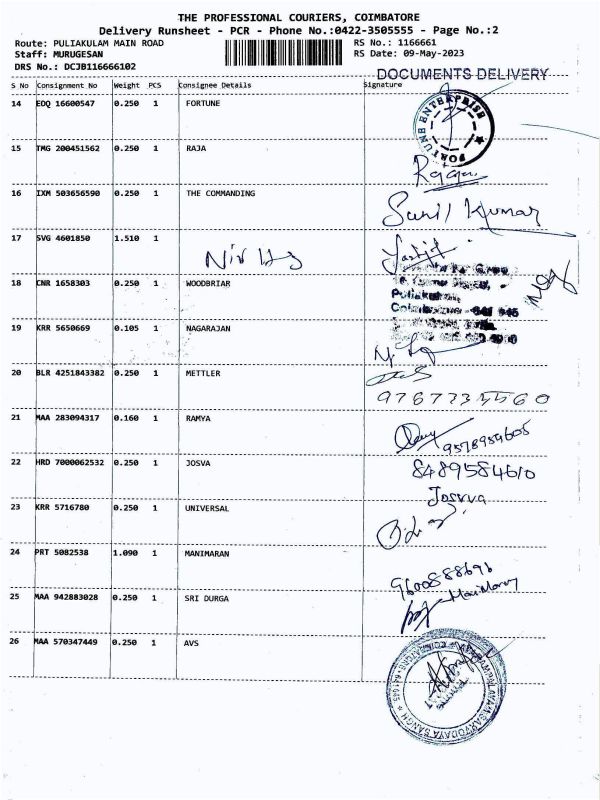 THE PROFESSIONAL COURIERS, COIMBATORE
Delivery Runsheet - PCR - Phone No.:0422-3505555 - Page No.:2
Route: PULIAKULAM MAIN ROAD RS No.: 1166661
Staff: MURUGESAN RS Date: 09-May-2023
DRS No.: DCJB116666102
DOCUMENTS DELIVERY
S No Consignment No Weight PCS Consignee Details Signature
14 EDQ 16600547 0.250 1 FORTUNE
FORTUNE ENTERPRISE
15 TMG 200451562 0.250 1 RAJA
16 IXM 503656590 0.250 1 THE COMMANDING
Sunil Kumar
17 SVG 4601850 1.510 1
18 CNR 1658303 0.250 1 WOODBRIAR
Puliakulam,
19 KRR 5650669 0.105 1 NAGARAJAN
20 BLR 4251843382 0.250 1 METTLER
21 MAA 283094317 0.160 1 RAMYA
9578959605
22 HRD 7000062532 0.250 1 JOSVA
8489584610
Josvva
23 KRR 5716780 0.250 1 UNIVERSAL
24 PRT 5082538 1.090 1 MANIMARAN
9600888696
25 MAA 942883028 0.250 1 SRI DURGA
ManiMaran
26 MAA 570347449 0.250 1 AVS